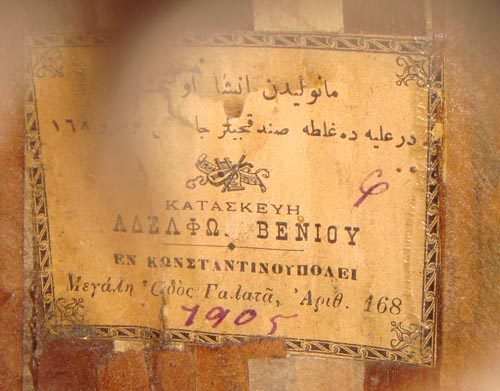 مانوليدن انشا او
در عليه ده غلطه صندقجيلر جا نومرو ١٦٨
φ
ΚΑΤΑΣΚΕΥΗ
ΑΔΕΛΦΩ. ΒΕΝΙΟΥ
ΕΝ ΚΩΝΣΤΑΝΤΙΝΟΥΠΟΛΕΙ
Μεγάλη Ὁδὸς Γαλατᾶ, Ἀριθ. 168
1905